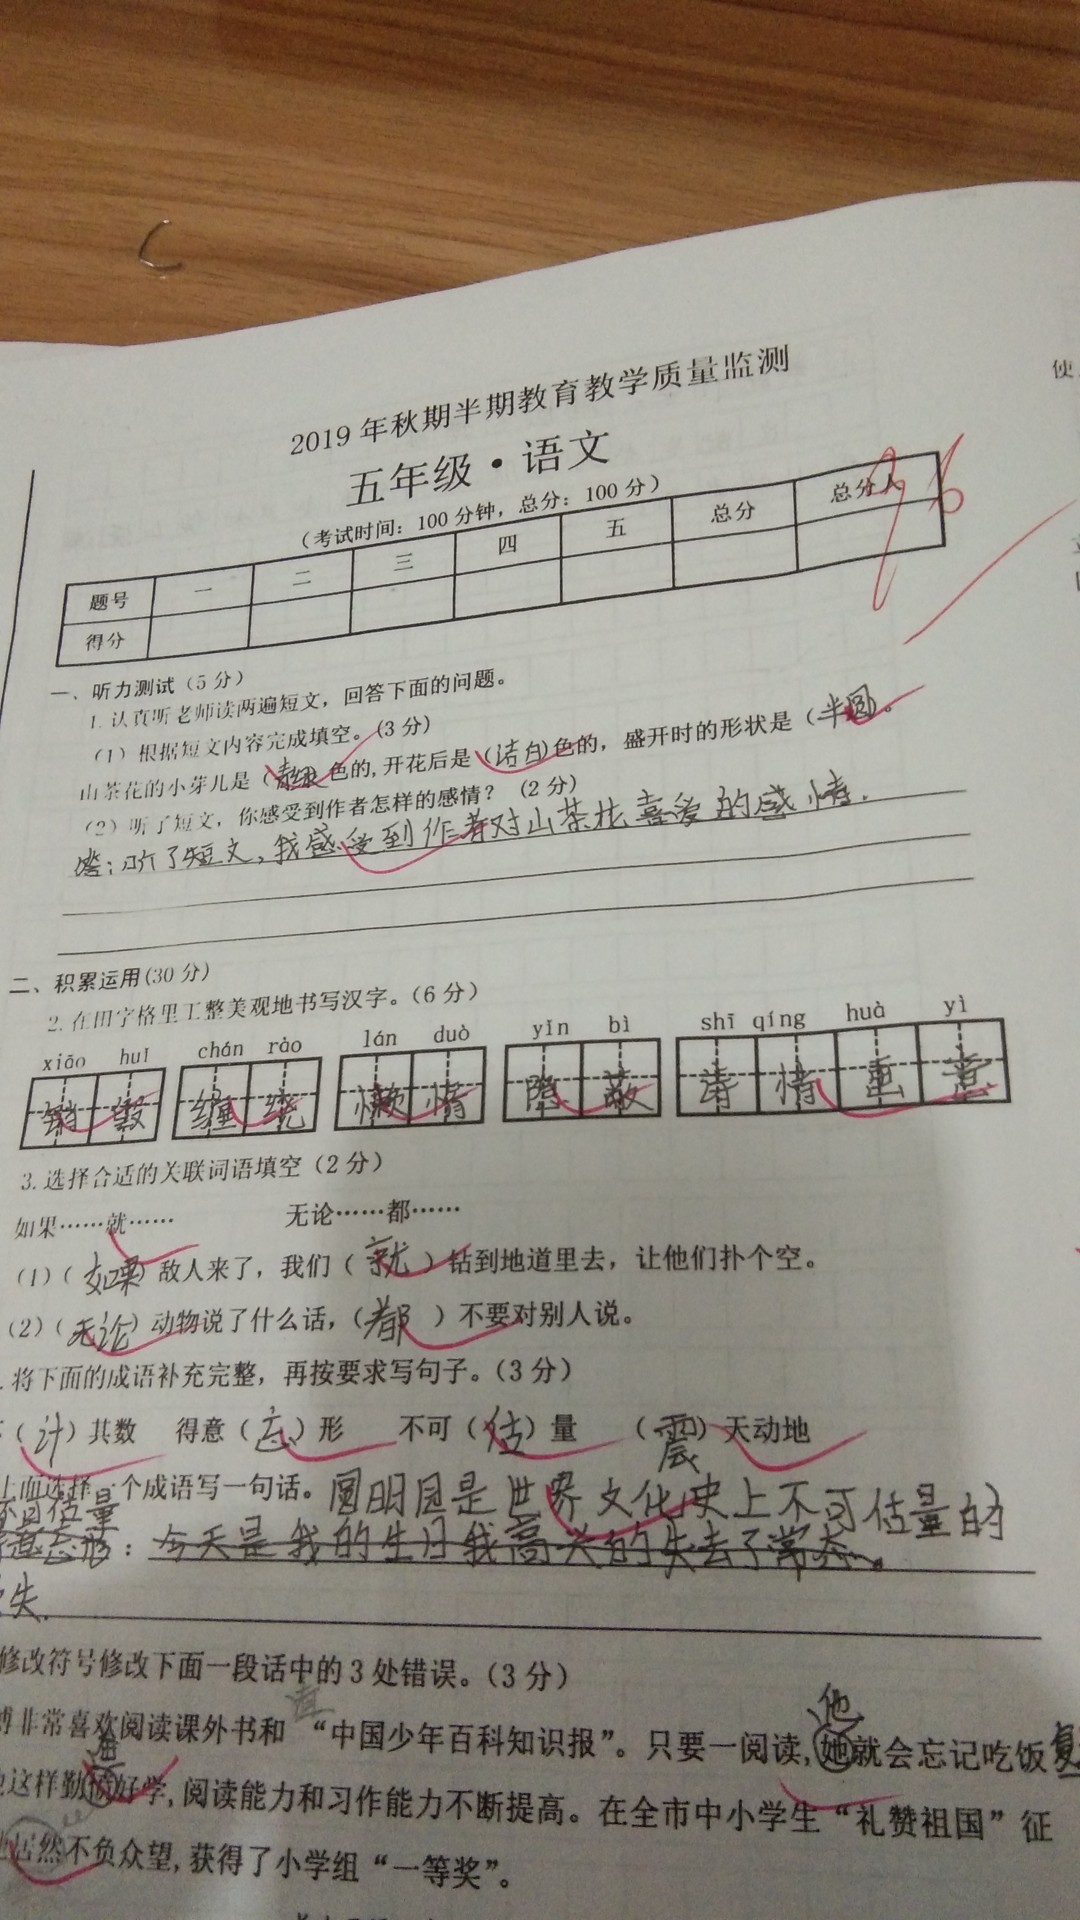 2019年秋期半期教育教学质量监测
五年级·语文
（考试时间：100分钟，总分：100分）
题号 一 二 三 四 五 总分 总分人
得分
96
一、听力测试（5分）
1.认真听老师读两遍短文，回答下面的问题。
（1）根据短文内容完成填空。（3分）
山茶花的小芽儿是（ ）色的,开花后是（洁白）色的，盛开时的形状是（半圆）。
（2）听了短文，你感受到作者怎样的感情？（2分）
答：听了短文，我感受到作者对山茶花喜爱的感情.
二、积累运用（30分）
2.在田字格里工整美观地书写汉字。（6分）
xiāo huǐ chán rào lán duò yǐn bì shī qíng huà yì
销毁 缠绕 懒惰 隐蔽 情画意
3.选择合适的关联词语填空（2分）
如果……就…… 无论……都……
（1）（如果）敌人来了，我们（就）钻到地道里去，让他们扑个空。
（2）（无论）动物说了什么话，（都）不要对别人说。
.将下面的成语补充完整，再按要求写句子。（3分）
（计）其数 得意（忘）形 不可（估）量 （震）天动地
上面选择一个成语写一句话。圆明园是世界文化史上不可估量的
不可估量
得意忘形：今天是我的生日我高兴的失去了常态。
失.
修改符号修改下面一段话中的3处错误。（3分）
他
非常喜欢阅读课外书和“中国少年百科知识报”。只要一阅读,她就会忘记吃饭
这样勤 好学,阅读能力和习作能力不断提高。在全市中小学生“礼赞祖国”征
居然不负众望,获得了小学组“一等奖”。
使